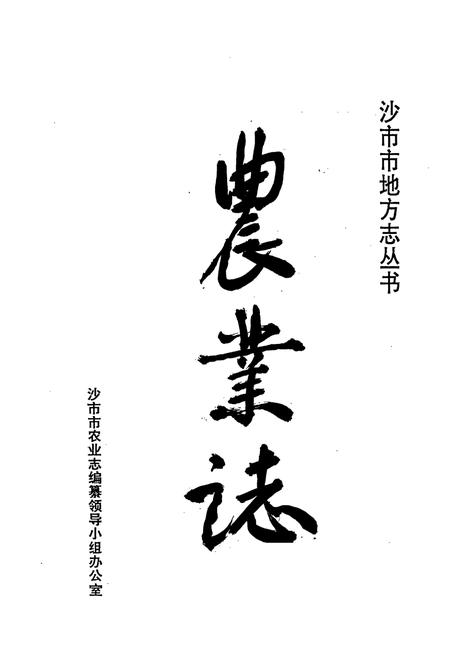 沙市市地方志丛书
農業誌
沙市市农业志编纂领导小组办公室